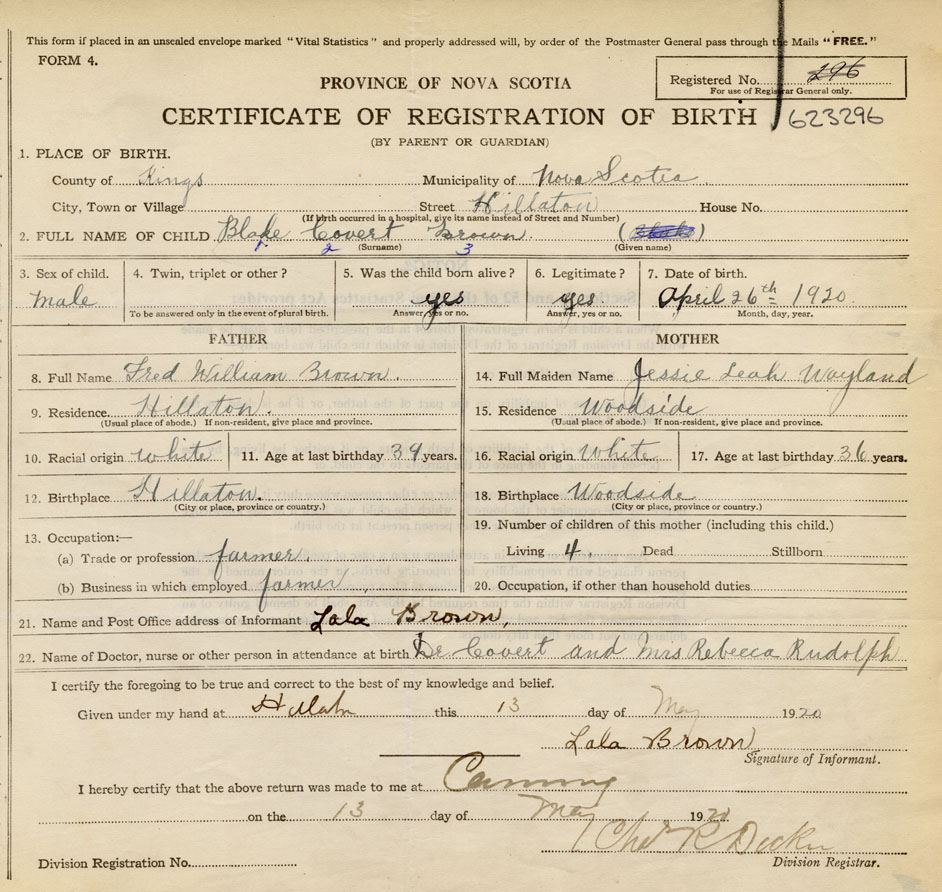 This form if placed in an unsealed envelope marked "Vital Statistics" and properly addressed will, by order of the Postmaster General pass through the Mails "FREE."
FORM 4.
Registered No. 296
For use of Registrar General only.
PROVINCE OF NOVA SCOTIA
CERTIFICATE OF REGISTRATION OF BIRTH 623296
(BY PARENT OR GUARDIAN)
1. PLACE OF BIRTH.
County of Kings Municipality of Nova Scotia
City, Town or Village Street Hillaton House No.
(If birth occurred in a hospital, give its name instead of Street and Number)
2. FULL NAME OF CHILD Blake Covert Brown ( )
1 2 (Surname) 3 (Given name)
3. Sex of child. 4. Twin, triplet or other? 5. Was the child born alive? 6. Legitimate? 7. Date of birth.
male yes yes. April 26th 1920
To be answered only in the event of plural birth. Answer, yes or no. Answer, yes or no. Month, day, year.
FATHER MOTHER
8. Full Name Fred William Brown. 14. Full Maiden Name Jessie Leah Wayland
9. Residence. Hillaton. 15. Residence Woodside
(Usual place of abode.) If non-resident, give place and province. (Usual place of abode.) If non-resident, give place and province.
10. Racial origin white 11. Age at last birthday 39 years. 16. Racial origin White. 17. Age at last birthday 36 years.
12. Birthplace Hillaton. 18. Birthplace Woodside
(City or place, province or country.) (City or place, province or country.)
13. Occupation:— 19. Number of children of this mother (including this child.)
(a) Trade or profession farmer. Living 4. Dead Stillborn
(b) Business in which employed farmer 20. Occupation, if other than household duties
21. Name and Post Office address of Informant Lala Brown,
22. Name of Doctor, nurse or other person in attendance at birth Dr Covert and Mrs Rebecca Rudolph
I certify the foregoing to be true and correct to the best of my knowledge and belief.
Given under my hand at this 13 day of May 1920
Lala Brown
Signature of Informant.
I hereby certify that the above return was made to me at Canning
on the 13 day of May 1920
Chas R Decker
Division Registration No. Division Registrar.